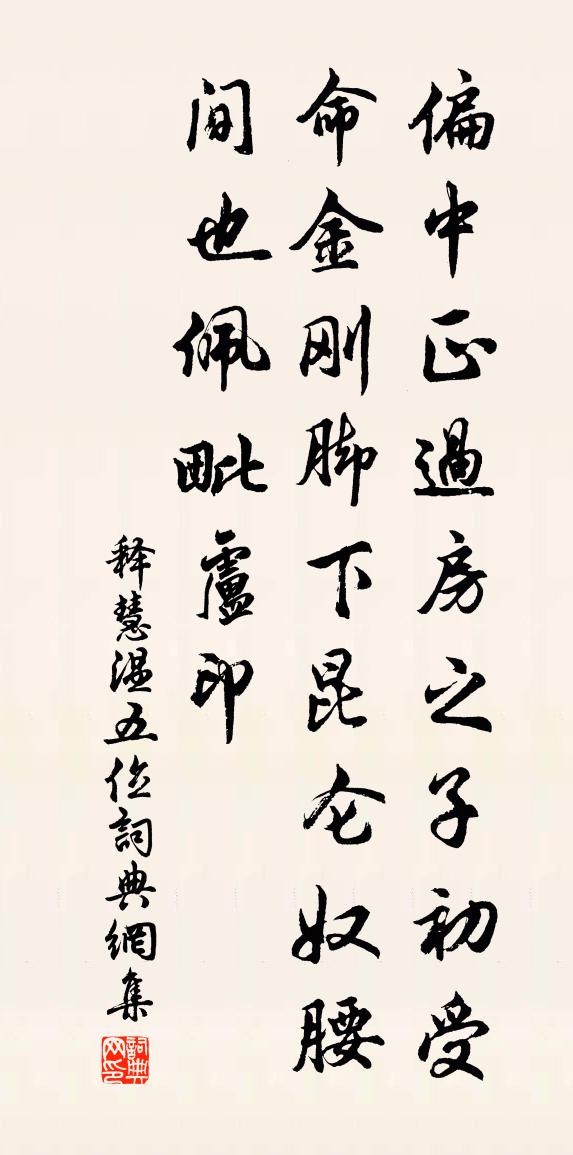 偏中正過房之子初受
命金刚脚下昆仑奴腰
间也佩毗盧印
释慧温五位詞典網集
詞典网印